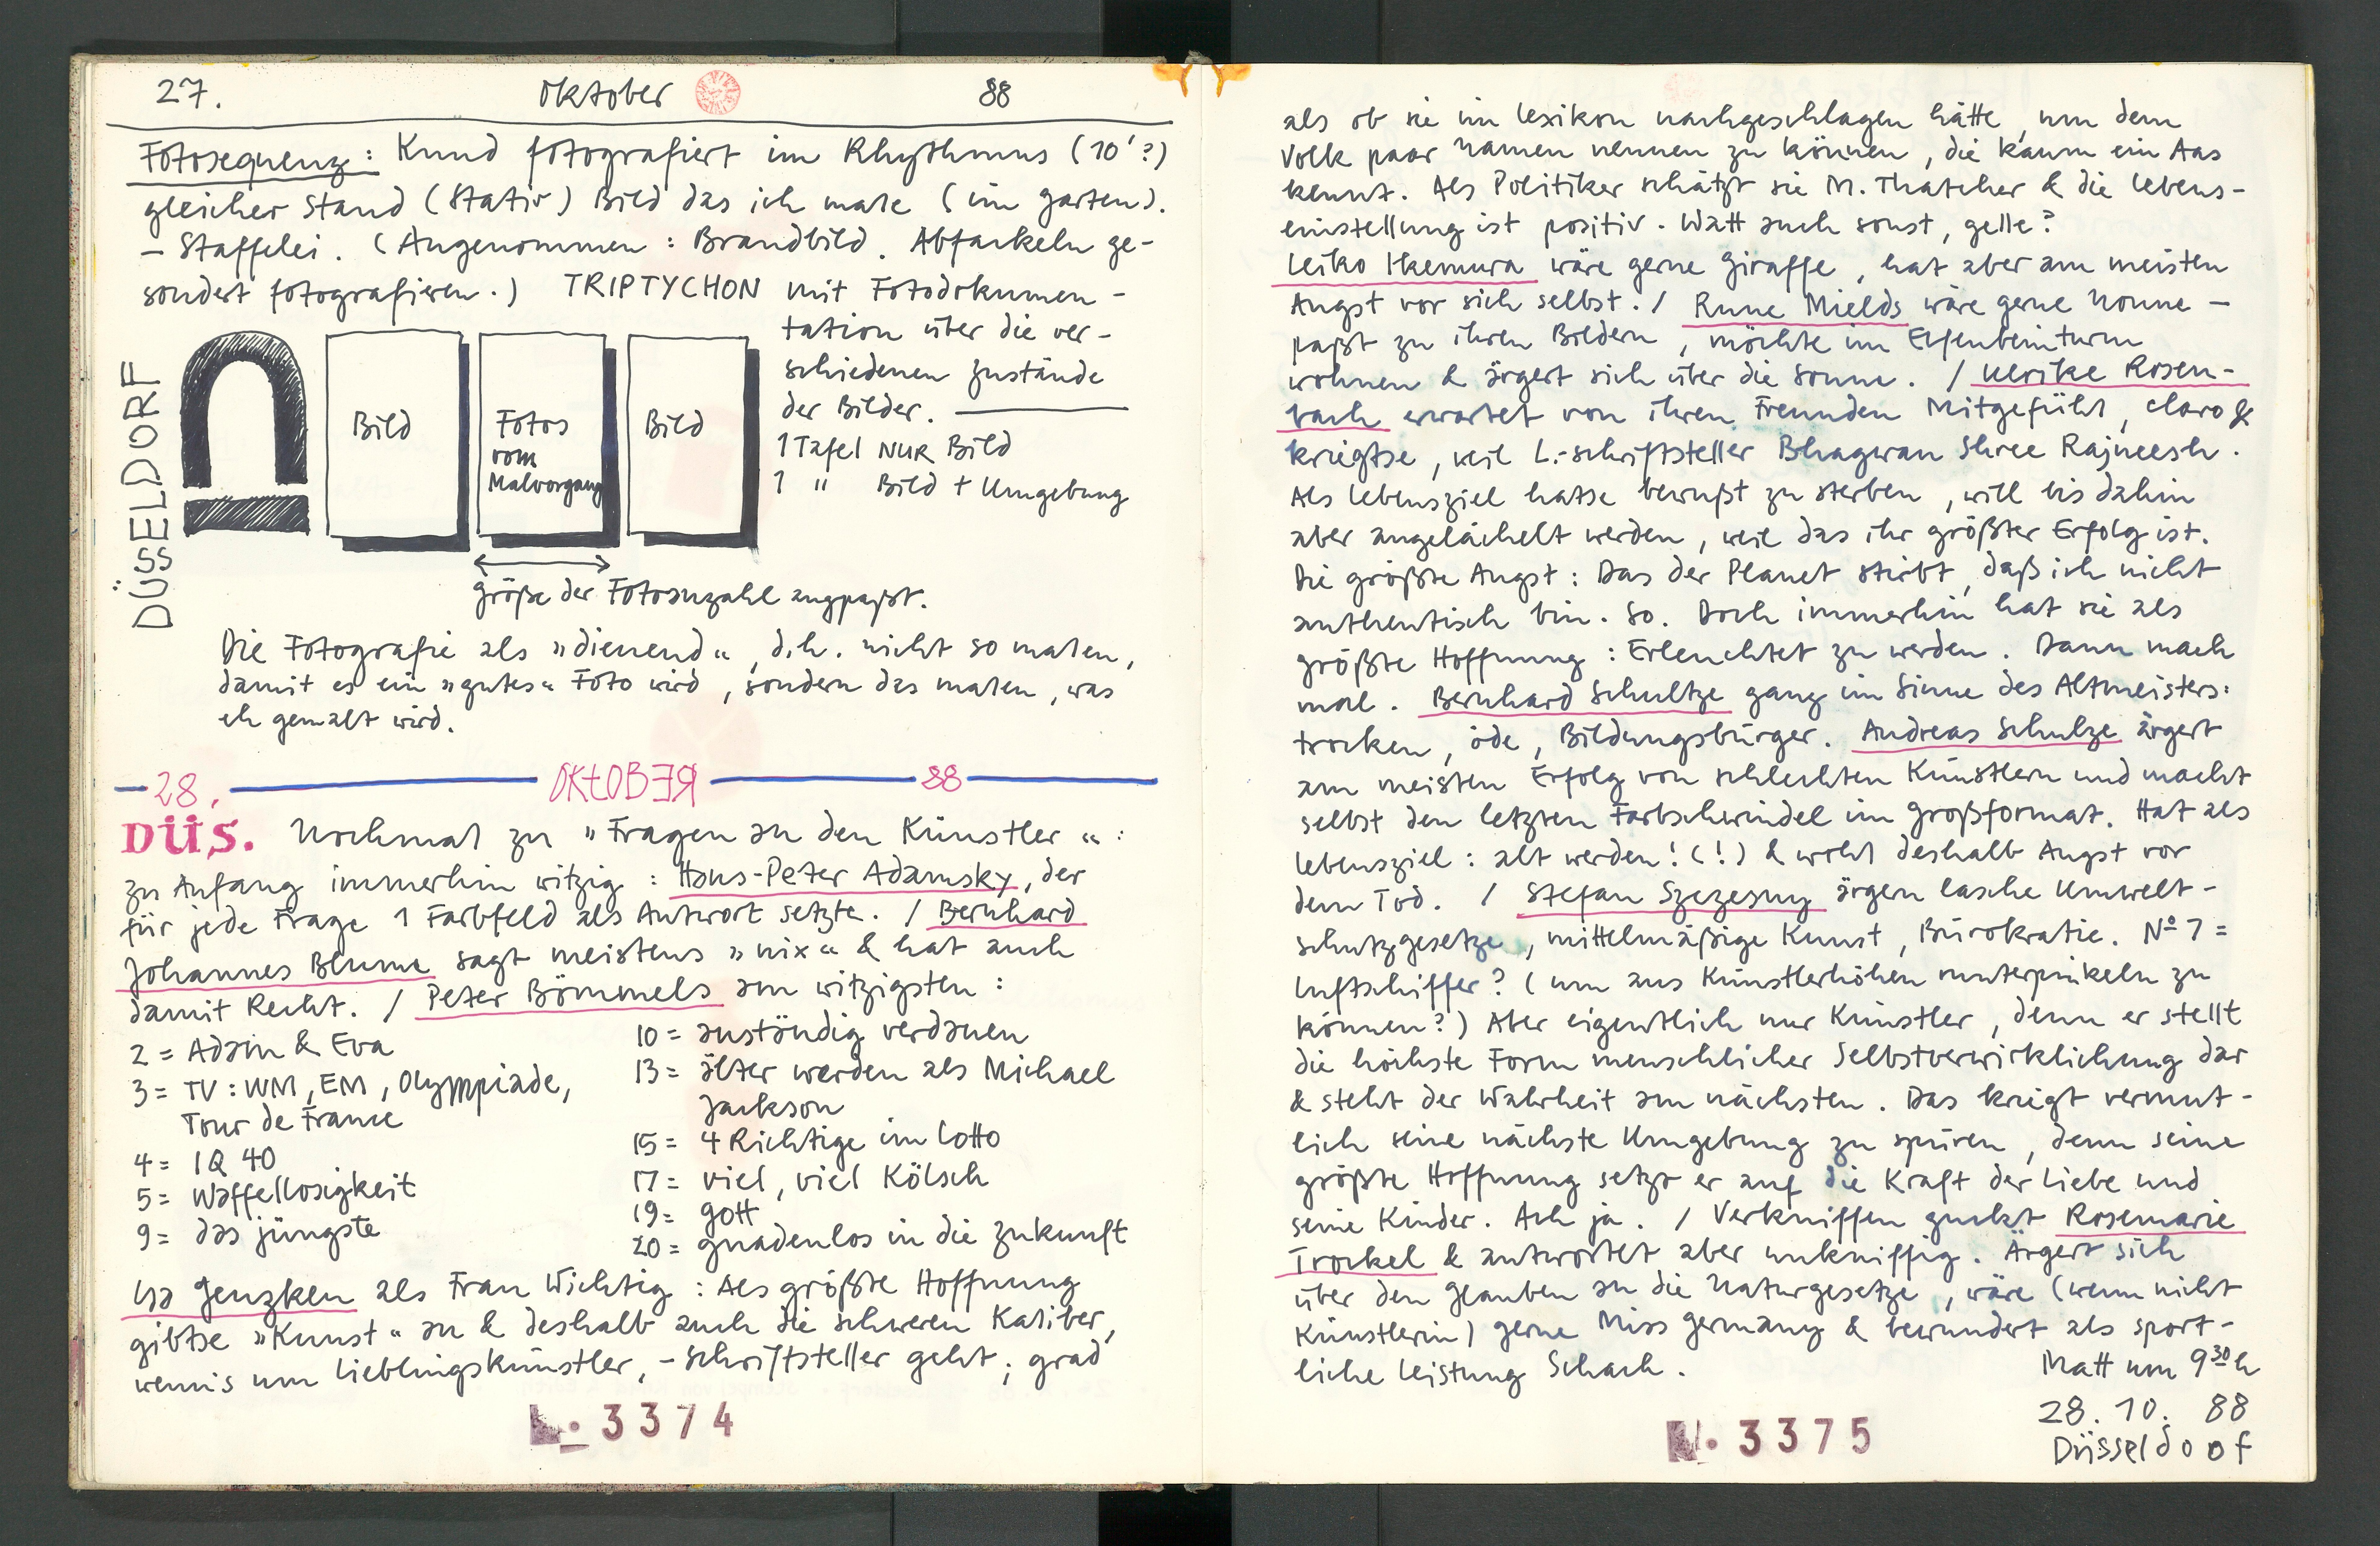 27. Oktober 88
Fotosequenz: Knud fotografiert im Rhythmus (10'?)
gleicher Stand (Stativ) Bild das ich male (im Garten).
– Staffelei. (Angenommen: Brandbild. Abfackeln ge-
sondert fotografieren.) TRIPTYCHON mit Fotodokumen-
tation über die ver-
schiedenen Zustände
der Bilder.
1 Tafel NUR Bild
1 " Bild + Umgebung
DÜSSELDORF
Bild
Fotos
vom
Malvorgang
Bild
Größe der Fotoanzahl angepaßt.
Die Fotografie als »dienend«, d.h. nicht so malen,
damit es ein »gutes« Foto wird, sondern das malen, was
eh gemalt wird.
28. OKtOBER 88
DÜS. Nochmal zu »Fragen an den Künstler«:
zu Anfang immerhin witzig: Hans-Peter Adamsky, der
für jede Frage 1 Farbfeld als Antwort setzte. / Bernhard
Johannes Blume sagt meistens »nix« & hat auch
damit Recht. / Peter Bömmels am witzigsten:
2 = Adam & Eva
3 = TV: WM, EM, Olympiade,
Tour de France
4 = IQ 40
5 = Waffellosigkeit
9 = das jüngste
10 = anständig verdauen
13 = älter werden als Michael
Jackson
15 = 4 Richtige im Lotto
17 = viel, viel Kölsch
19 = Gott
20 = gnadenlos in die Zukunft
Isa Genzken als Frau Wichtig: Als größte Hoffnung
gibtse »Kunst« an & deshalb auch die schweren Kaliber,
wenns um Lieblingskünstler, -schriftsteller geht; grad
№. 3374
als ob sie im Lexikon nachgeschlagen hätte, um dem
Volk paar Namen nennen zu können, die kaum ein Aas
kennt. Als Politiker schätzt sie M. Thatcher & die Lebens-
einstellung ist positiv. Watt auch sonst, gelle?
Leiko Ikemura wäre gerne Giraffe, hat aber am meisten
Angst vor sich selbst. / Rune Mields wäre gerne Nonne –
paßt zu ihren Bildern, möchte im Elfenbeinturm
wohnen & ärgert sich über die Sonne. / Ulrike Rosen-
bach erwartet von ihren Freunden Mitgefühl, claro &
kriegtse, weil L.-schriftsteller Bhagwan Shree Rajneesh.
Als Lebensziel hatse bewußt zu sterben, will bis dahin
aber angelächelt werden, weil das ihr größter Erfolg ist.
Die größte Angst: Das der Planet stirbt, daß ich nicht
authentisch bin. So. Doch immerhin hat sie als
größte Hoffnung: Erleuchtet zu werden. Dann mach
mal. Bernhard Schultze ganz im Sinne des Altmeisters:
trocken, öde, Bildungsbürger. Andreas Schulze ärgert
am meisten Erfolg von schlechten Künstlern und macht
selbst den letzten Farbschwindel im Großformat. Hat als
Lebensziel: alt werden! (!) & wohl deshalb Angst vor
dem Tod. / Stefan Szczesny ärgern lasche Umwelt-
schutzgesetze, mittelmäßige Kunst, Bürokratie. № 7 =
Luftschiffer? (um aus Künstlerhöhen runterpinkeln zu
können?) Aber eigentlich nur Künstler, denn er stellt
die höchste Form menschlicher Selbstverwirklichung dar
& steht der Wahrheit am nächsten. Das kriegt vermut-
lich seine nächste Umgebung zu spüren, denn seine
größte Hoffnung setzt er auf die Kraft der Liebe und
seine Kinder. Ach ja. / Verkniffen guckt Rosemarie
Trockel & antwortet aber unkniffig. Ärgert sich
über den Glauben an die Naturgesetze, wäre (wenn nicht
Künstlerin) gerne Miss Germany & bewundert als sport-
liche Leistung Schach.
Matt um 9 30 h
28. 10. 88
Düsseldoof
№. 3375